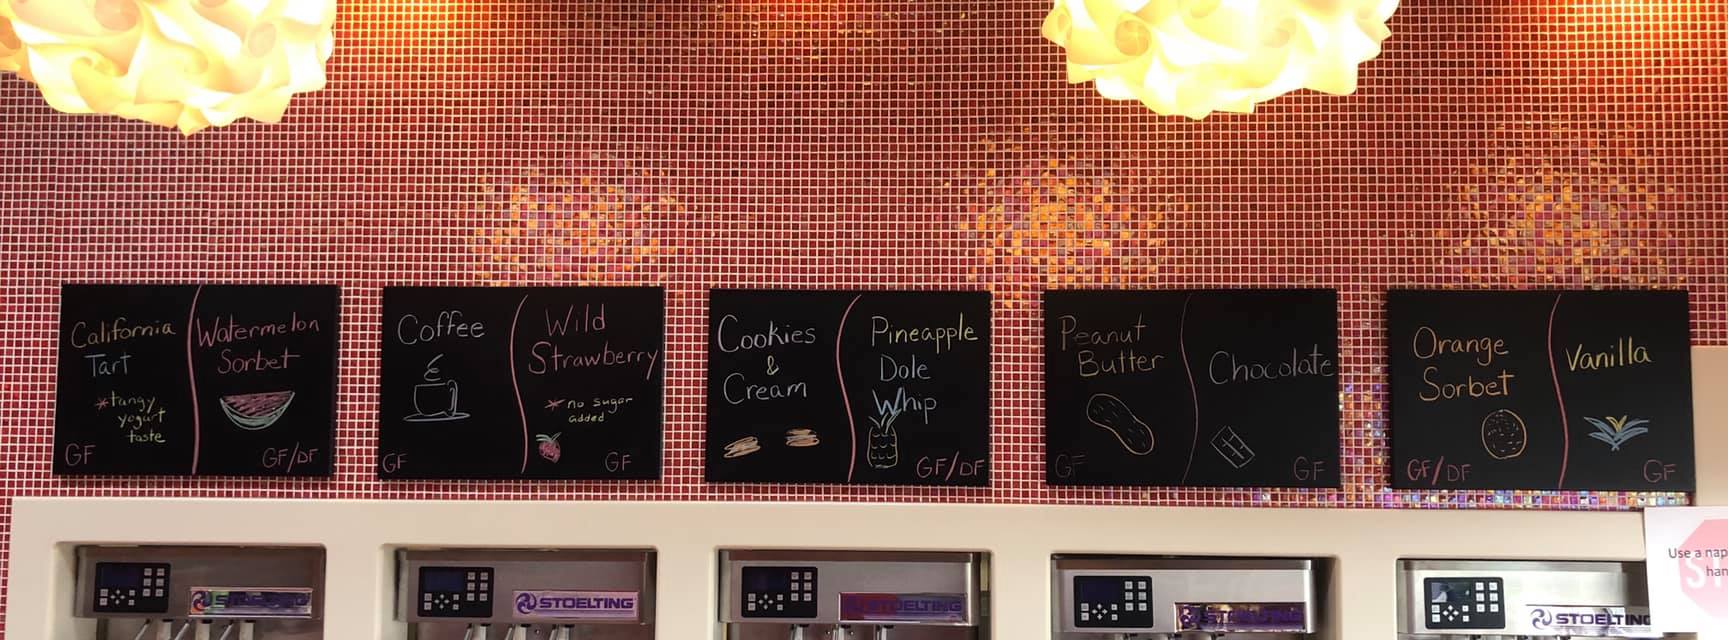 California
Tart
*tangy
yogurt
taste
GF
Watermelon
Sorbet
GF/DF
Coffee
GF
Wild
Strawberry
*no sugar
added
GF
Cookies
&
Cream
Pineapple
Dole
Whip
GF/DF
Peanut
Butter
GF
Chocolate
GF
Orange
Sorbet
GF/DF
Vanilla
GF
STOELTING
STOELTING
STOELTING
STOELTING
STOELTING
Use a nap
han
ST